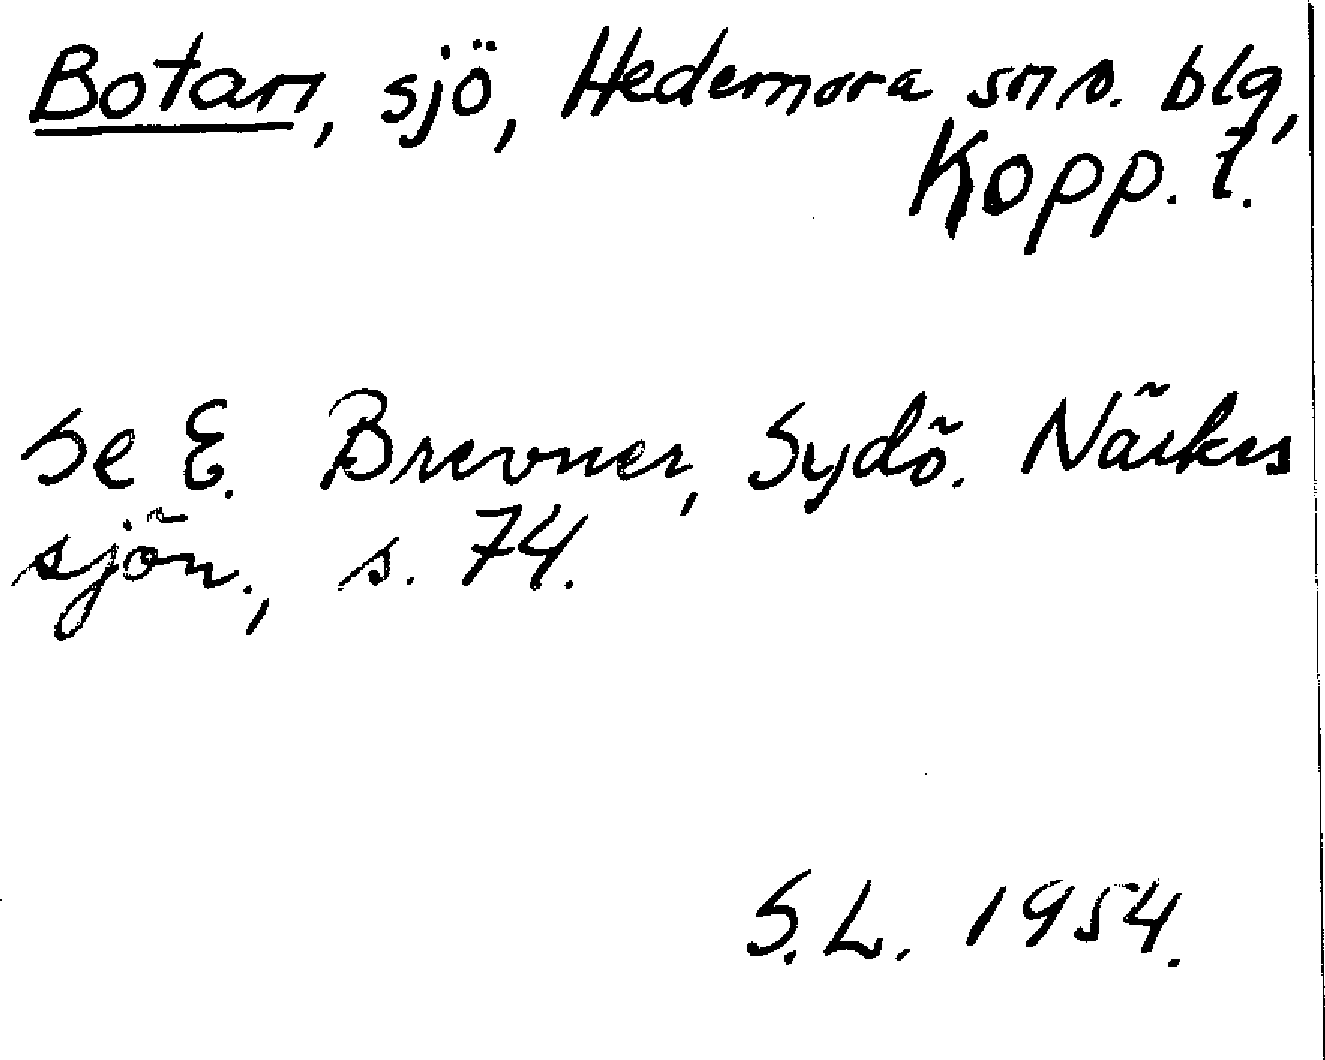 Botarn, sjö, Hedemora sn o. blg,
Kopp. l.
se E. Brevner, Sydö. Närkes
sjön., s. 74.
S.L. 1954.